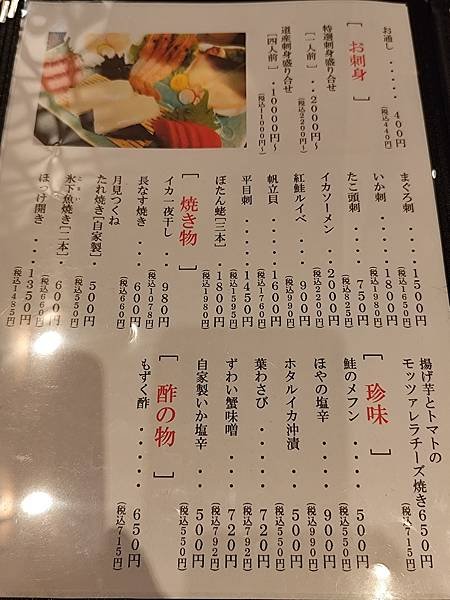 お通し・・・・・400円
(税込440円)
[お刺身]
特選刺身盛り合せ
[一人前]・・2000円〜
(税込2200円〜)
道産刺身盛り合せ
[四人前]・・10000円〜
(税込11000円〜)
まぐろ刺・・・・1500円
(税込1650円)
いか刺・・・・・1800円
(税込1980円)
たこ頭刺・・・・・750円
(税込825円)
イカソーメン・・2000円
(税込2200円)
紅鮭ルイベ・・・・900円
(税込990円)
帆立貝・・・・・1600円
(税込1760円)
平目刺・・・・・1450円
(税込1595円)
ぼたん蝦[三本]・1800円
(税込1980円)
[焼き物]
イカ一夜干し・・・980円
(税込1078円)
長なす焼き・・・・600円
(税込660円)
月見つくね
たれ焼き[自家製]・500円
(税込550円)
氷下魚焼き[二本]・600円
こまい
(税込660円)
ほっけ開き・・・1350円
(税込1485円)
揚げ芋とトマトの
モッツァレラチーズ焼き650円
(税込715円)
[珍味]
鮭のメフン・・・・500円
(税込550円)
ほやの塩辛・・・・900円
(税込990円)
ホタルイカ沖漬・・500円
(税込550円)
葉わさび・・・・・720円
(税込792円)
ずわい蟹味噌・・・720円
(税込792円)
自家製いか塩辛・・500円
(税込550円)
[酢の物]
もずく酢・・・・・650円
(税込715円)